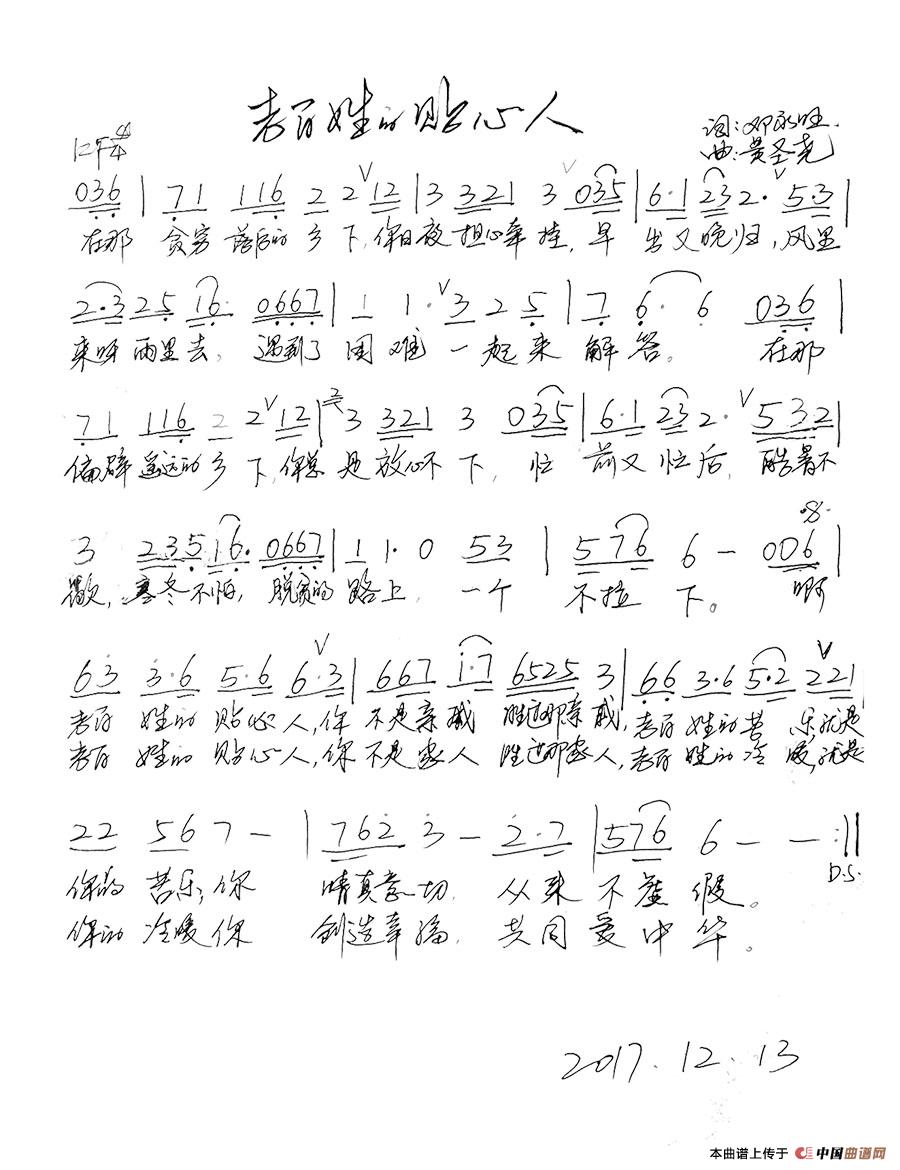 老百姓的贴心人
词:邓永旺
1=F 4/4 曲:黄圣尧
036 | 71 116 2 2 12 | 3 3321 3 035 | 6·1 23 2· 5·3 |
在那 贫穷 落后的 乡 下,你日夜 担心牵挂,早 出又晚归,风里
2·325 16· 0667 | 1 1· 3 2 5 | 7 6· 6 036 |
来呀雨里去,遇到了困难一起来解答。在那
71 116 2 2 12 | 3 321 3 035 | 6·1 23 2· 532 |
偏僻遥远的乡下,你总是放心不下,忙前又忙后,酷暑不
3 23516· 0667 | 1 1· 0 53 | 576 6 - 006 |
歇,寒冬不怕,脱贫的路上,一个不拉下。啊
63 3·6 5·6 6·3 | 667 1·7 6525 3 | 66 3·6 5·2 221
老百姓的贴心人,你不是亲戚胜过那亲戚,老百姓的苦乐,就是
老百姓的贴心人,你不是家人胜过那家人,老百姓的冷暖,就是
22 56 7 - | 762 3 - 2·7 | 576 6 - - :||
D.S.
你的苦乐;你情真意切,从来不虚假。
你的冷暖你创造幸福,共同爱中华。
2017.12.13
本曲谱上传于 中国曲谱网